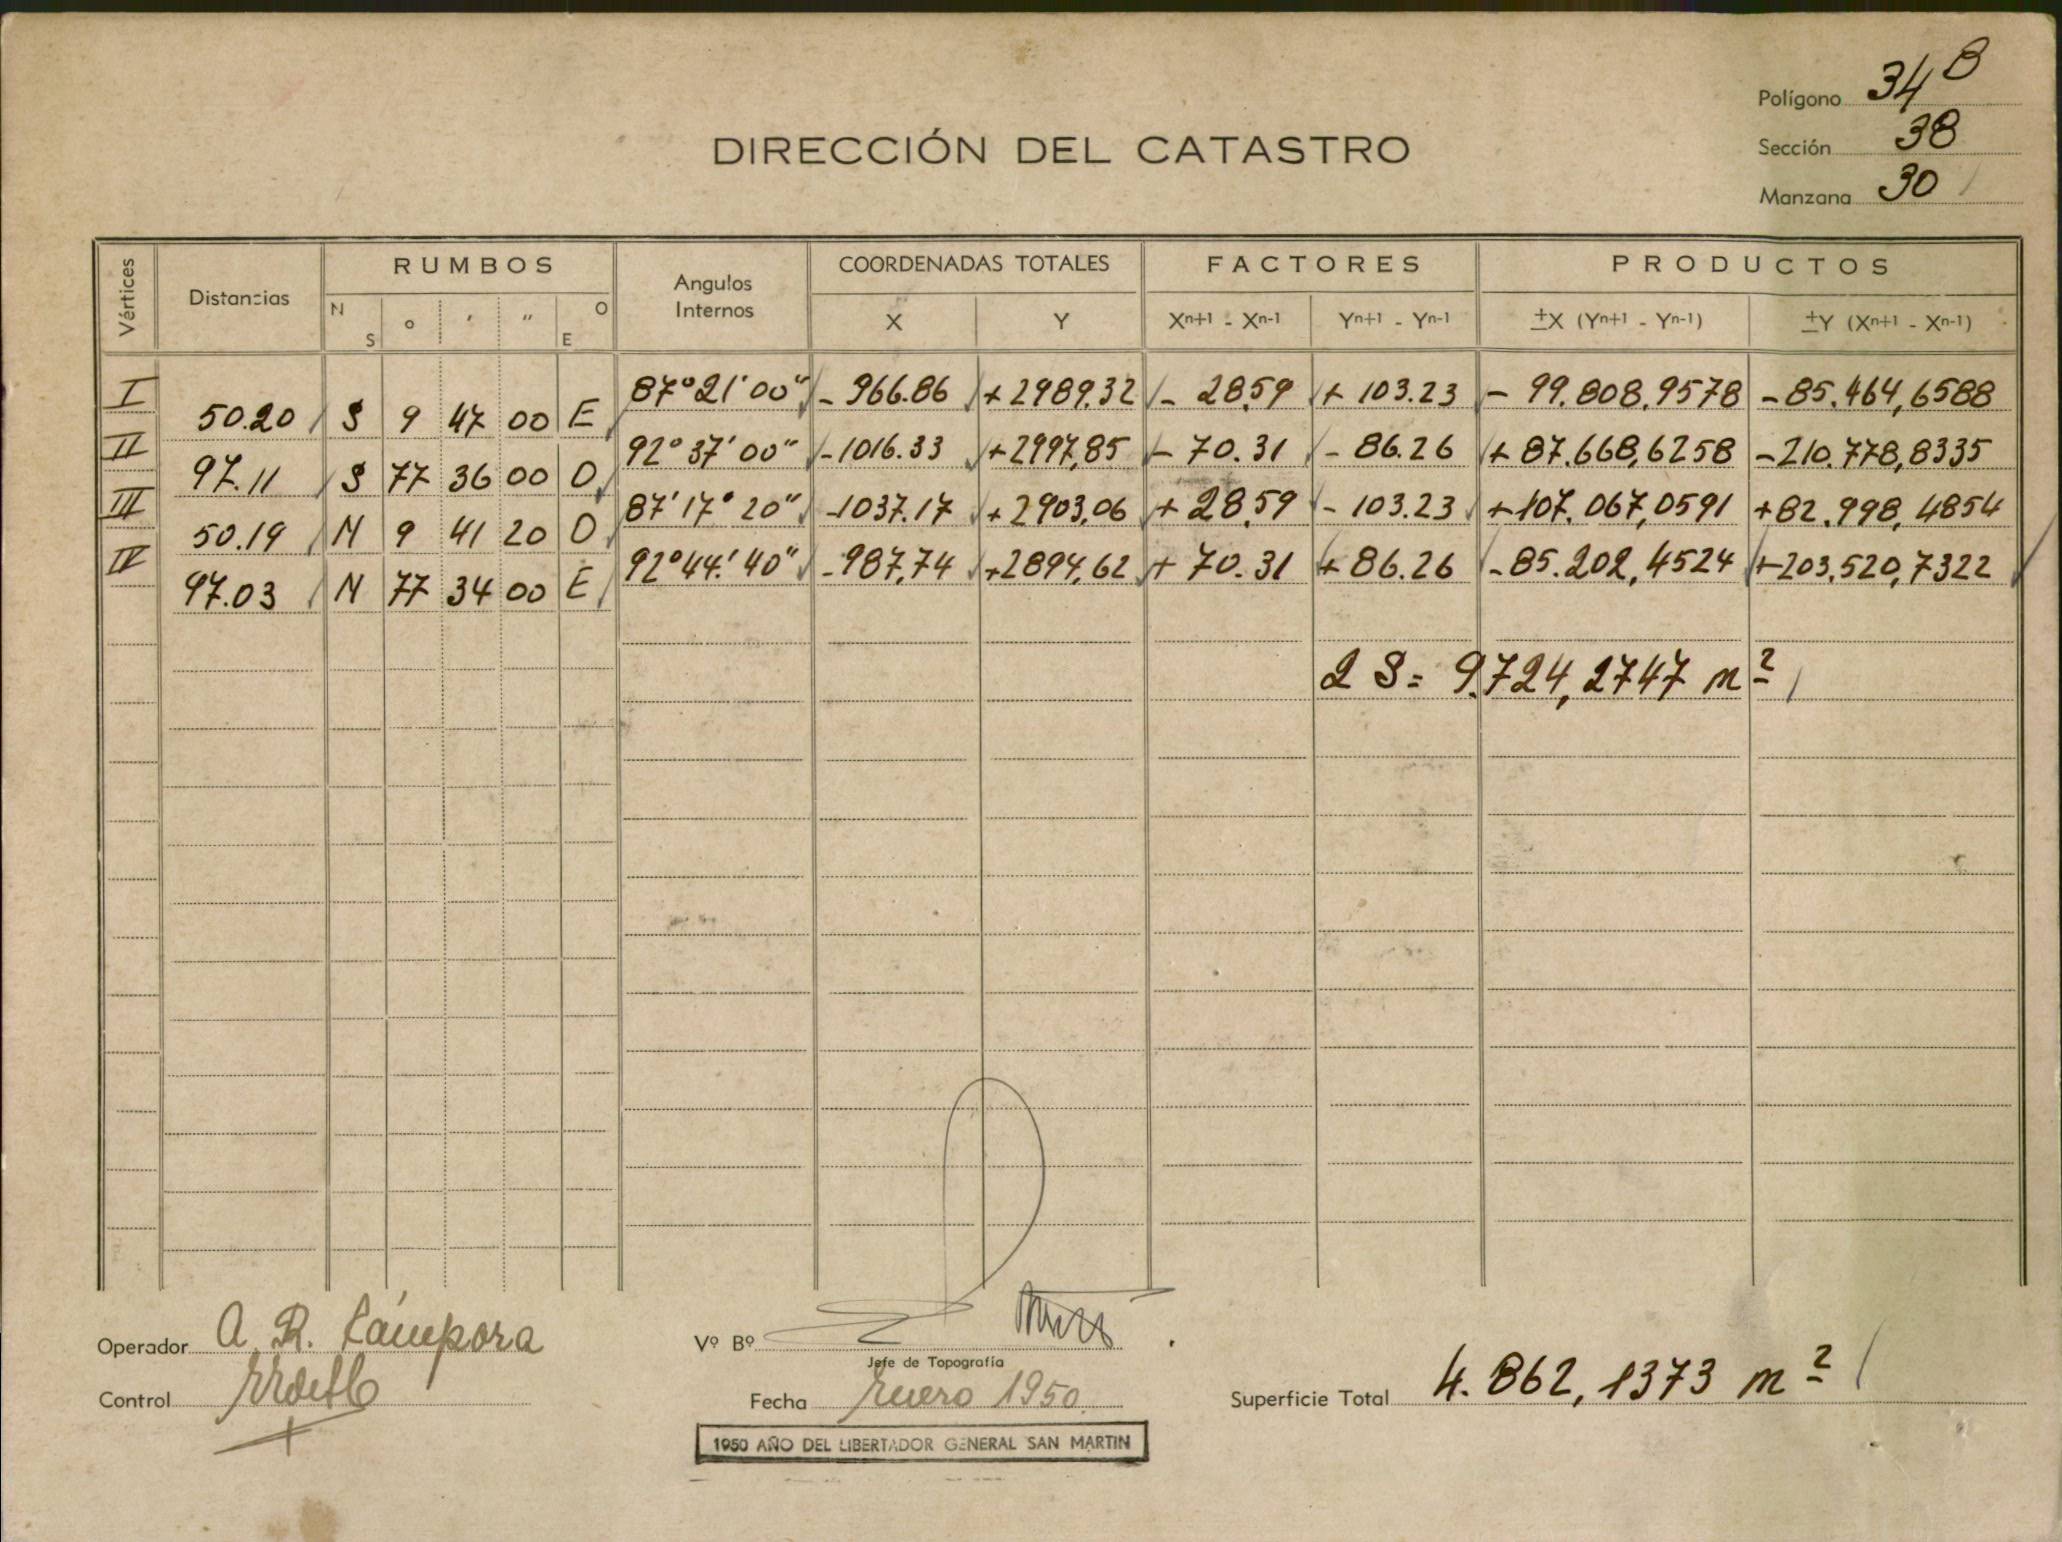 Polígono 34 B
DIRECCIÓN DEL CATASTRO
Sección 38
Manzana 30
Vértices Distancias RUMBOS Angulos Internos COORDENADAS TOTALES FACTORES PRODUCTOS
N S ° ' " O E X Y Xn+1 - Xn-1 Yn+1 - Yn-1 ±X (Yn+1 - Yn-1) ±Y (Xn+1 - Xn-1)
I 87°21'00" - 966.86 + 2989.32 - 28.59 + 103.23 - 99.808,9578 - 85.464,6588
50.20 S 9 47 00 E
II 92°37'00" - 1016.33 + 2997,85 - 70.31 - 86.26 + 87.668,6258 - 210.778,8335
97.11 S 77 36 00 O
III 87'17°20" - 1037.17 + 2903,06 + 28.59 - 103.23 + 107.067,0591 + 82.998,4854
50.19 N 9 41 20 O
IV 92°44'40" - 987,74 + 2894,62 + 70.31 + 86.26 - 85.202,4524 + 203.520,7322
97.03 N 77 34 00 E
2 S = 9.724,2747 m²
Operador A. R. Cámpora
Vº Bº
Jefe de Topografía
Control
Fecha Enero 1950
Superficie Total 4.862,1373 m²
1950 AÑO DEL LIBERTADOR GENERAL SAN MARTIN